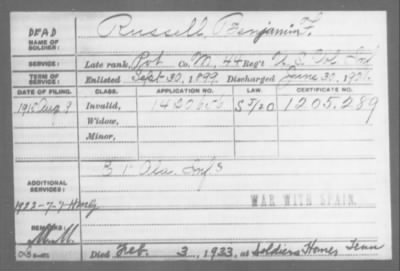 DEAD
NAME OF SOLDIER: Russell, Benjamin F.
SERVICE: Late rank, Pvt Co. M, 44 Reg't U.S. Vol. Inf
TERM OF SERVICE: Enlisted Sept 30, 1899. Discharged June 30, 1901.
DATE OF FILING. CLASS. APPLICATION NO. LAW. CERTIFICATE NO.
Invalid, 1205.289
Widow,
Minor,
ADDITIONAL SERVICES: Inf
WAR WITH SPAIN.
REMARKS:
Died Feb. 3, 1933, at Soldiers Home, Tenn